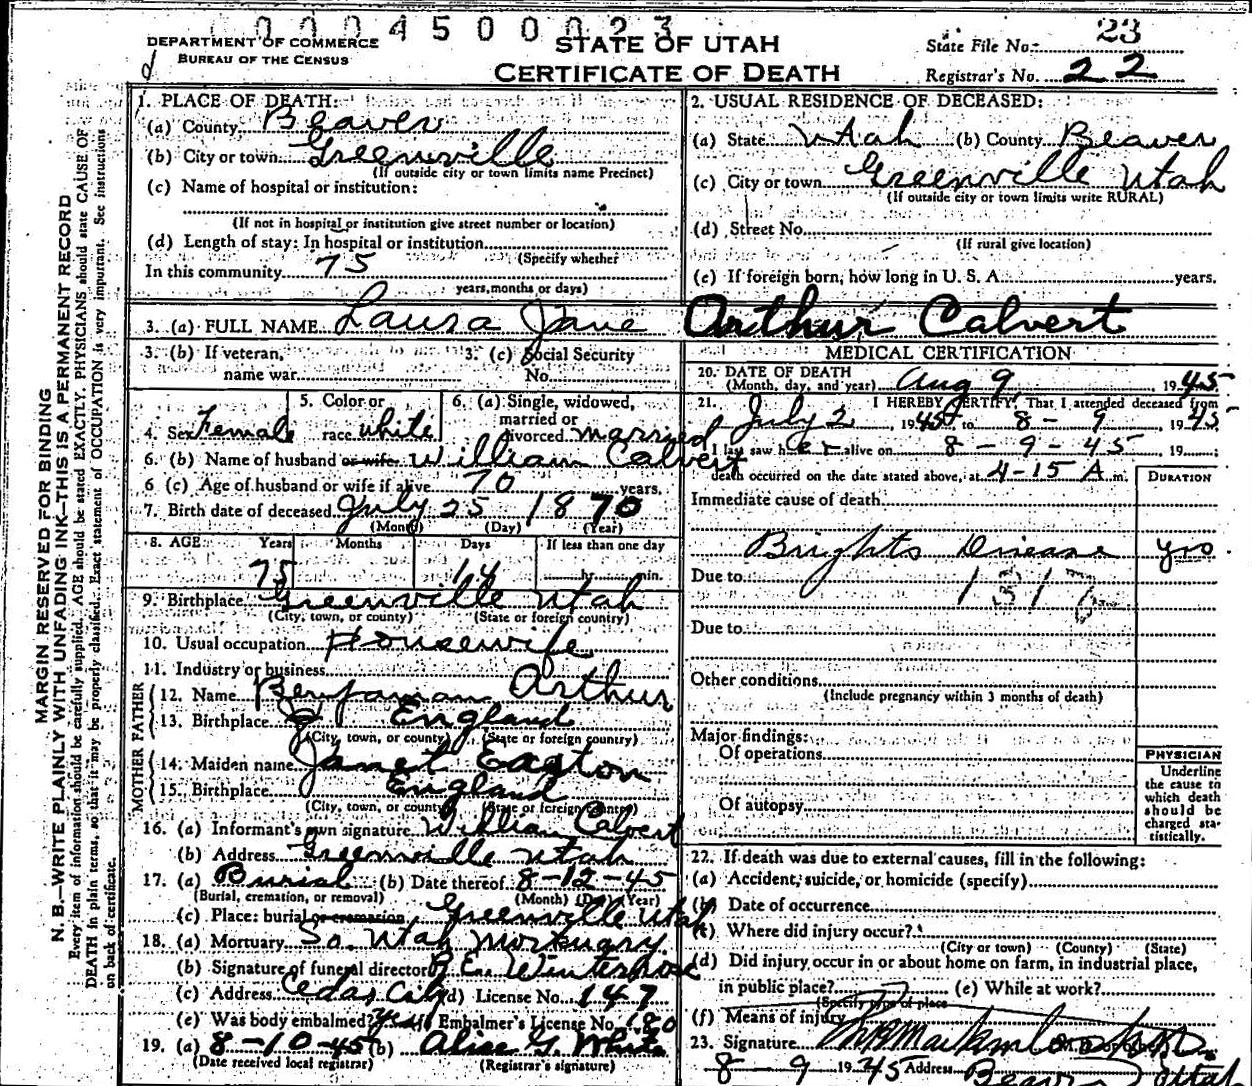 0004500023
DEPARTMENT OF COMMERCE
BUREAU OF THE CENSUS
STATE OF UTAH
CERTIFICATE OF DEATH
State File No. 23
Registrar's No. 22
MARGIN RESERVED FOR BINDING
N. B.—WRITE PLAINLY WITH UNFADING INK—THIS IS A PERMANENT RECORD
Every item of information should be carefully supplied. AGE should be stated EXACTLY. PHYSICIANS should state CAUSE OF
DEATH in plain terms, so that it may be properly classified. Exact statement of OCCUPATION is very important. See instructions
on back of certificate.
1. PLACE OF DEATH:
(a) County Beaver
(b) City or town Greenville
(If outside city or town limits name Precinct)
(c) Name of hospital or institution:
(If not in hospital or institution give street number or location)
(d) Length of stay: In hospital or institution
(Specify whether
In this community 75
years, months or days)
2. USUAL RESIDENCE OF DECEASED:
(a) State Utah (b) County Beaver
(c) City or town Greenville Utah
(If outside city or town limits write RURAL)
(d) Street No.
(If rural give location)
(e) If foreign born, how long in U. S. A. years.
3. (a) FULL NAME Laura Jane Arthur Calvert
3. (b) If veteran,
name war
3. (c) Social Security
No.
4. Sex Female
5. Color or
race white
6. (a) Single, widowed,
married or
divorced married
6. (b) Name of husband or wife William Calvert
6 (c) Age of husband or wife if alive 70 years.
7. Birth date of deceased July 25 1870
(Month) (Day) (Year)
8. AGE Years Months Days If less than one day
75 14 min.
9. Birthplace Greenville Utah
(City, town, or county) (State or foreign country)
10. Usual occupation Housewife
11. Industry or business
FATHER
12. Name Benjaman Arthur
13. Birthplace England
(City, town, or county) (State or foreign country)
MOTHER
14. Maiden name Janet Easton
15. Birthplace England
(City, town, or county) (State or foreign country)
16. (a) Informant's own signature William Calvert
(b) Address Greenville Utah
17. (a) Burial (b) Date thereof 8-12-45
(Burial, cremation, or removal) (Month) (Day) (Year)
(c) Place: burial or cremation Greenville Utah
18. (a) Mortuary So. Utah Mortuary
(b) Signature of funeral director Winterrose
(c) Address Cedar City (d) License No. 147
(e) Was body embalmed? yes Embalmer's License No. 180
19. (a) 8-10-45 (b) Alice G. White
(Date received local registrar) (Registrar's signature)
MEDICAL CERTIFICATION
20. DATE OF DEATH
(Month, day, and year) Aug 9, 1945
21. I HEREBY CERTIFY, That I attended deceased from
July 2, 1945 to 8-9, 1945
I last saw her alive on 8-9-45 19
death occurred on the date stated above, at 4-15 A m.
DURATION
Immediate cause of death
Brights Disease yrs
Due to
Due to
Other conditions
(Include pregnancy within 3 months of death)
Major findings:
Of operations
Of autopsy
PHYSICIAN
Underline
the cause to
which death
should be
charged sta-
tistically.
22. If death was due to external causes, fill in the following:
(a) Accident, suicide, or homicide (specify)
(b) Date of occurrence
(c) Where did injury occur?
(City or town) (County) (State)
(d) Did injury occur in or about home on farm, in industrial place,
in public place? (e) While at work?
(Specify type of place
(f) Means of injury
23. Signature
8-9 1945 Address Beaver Utah